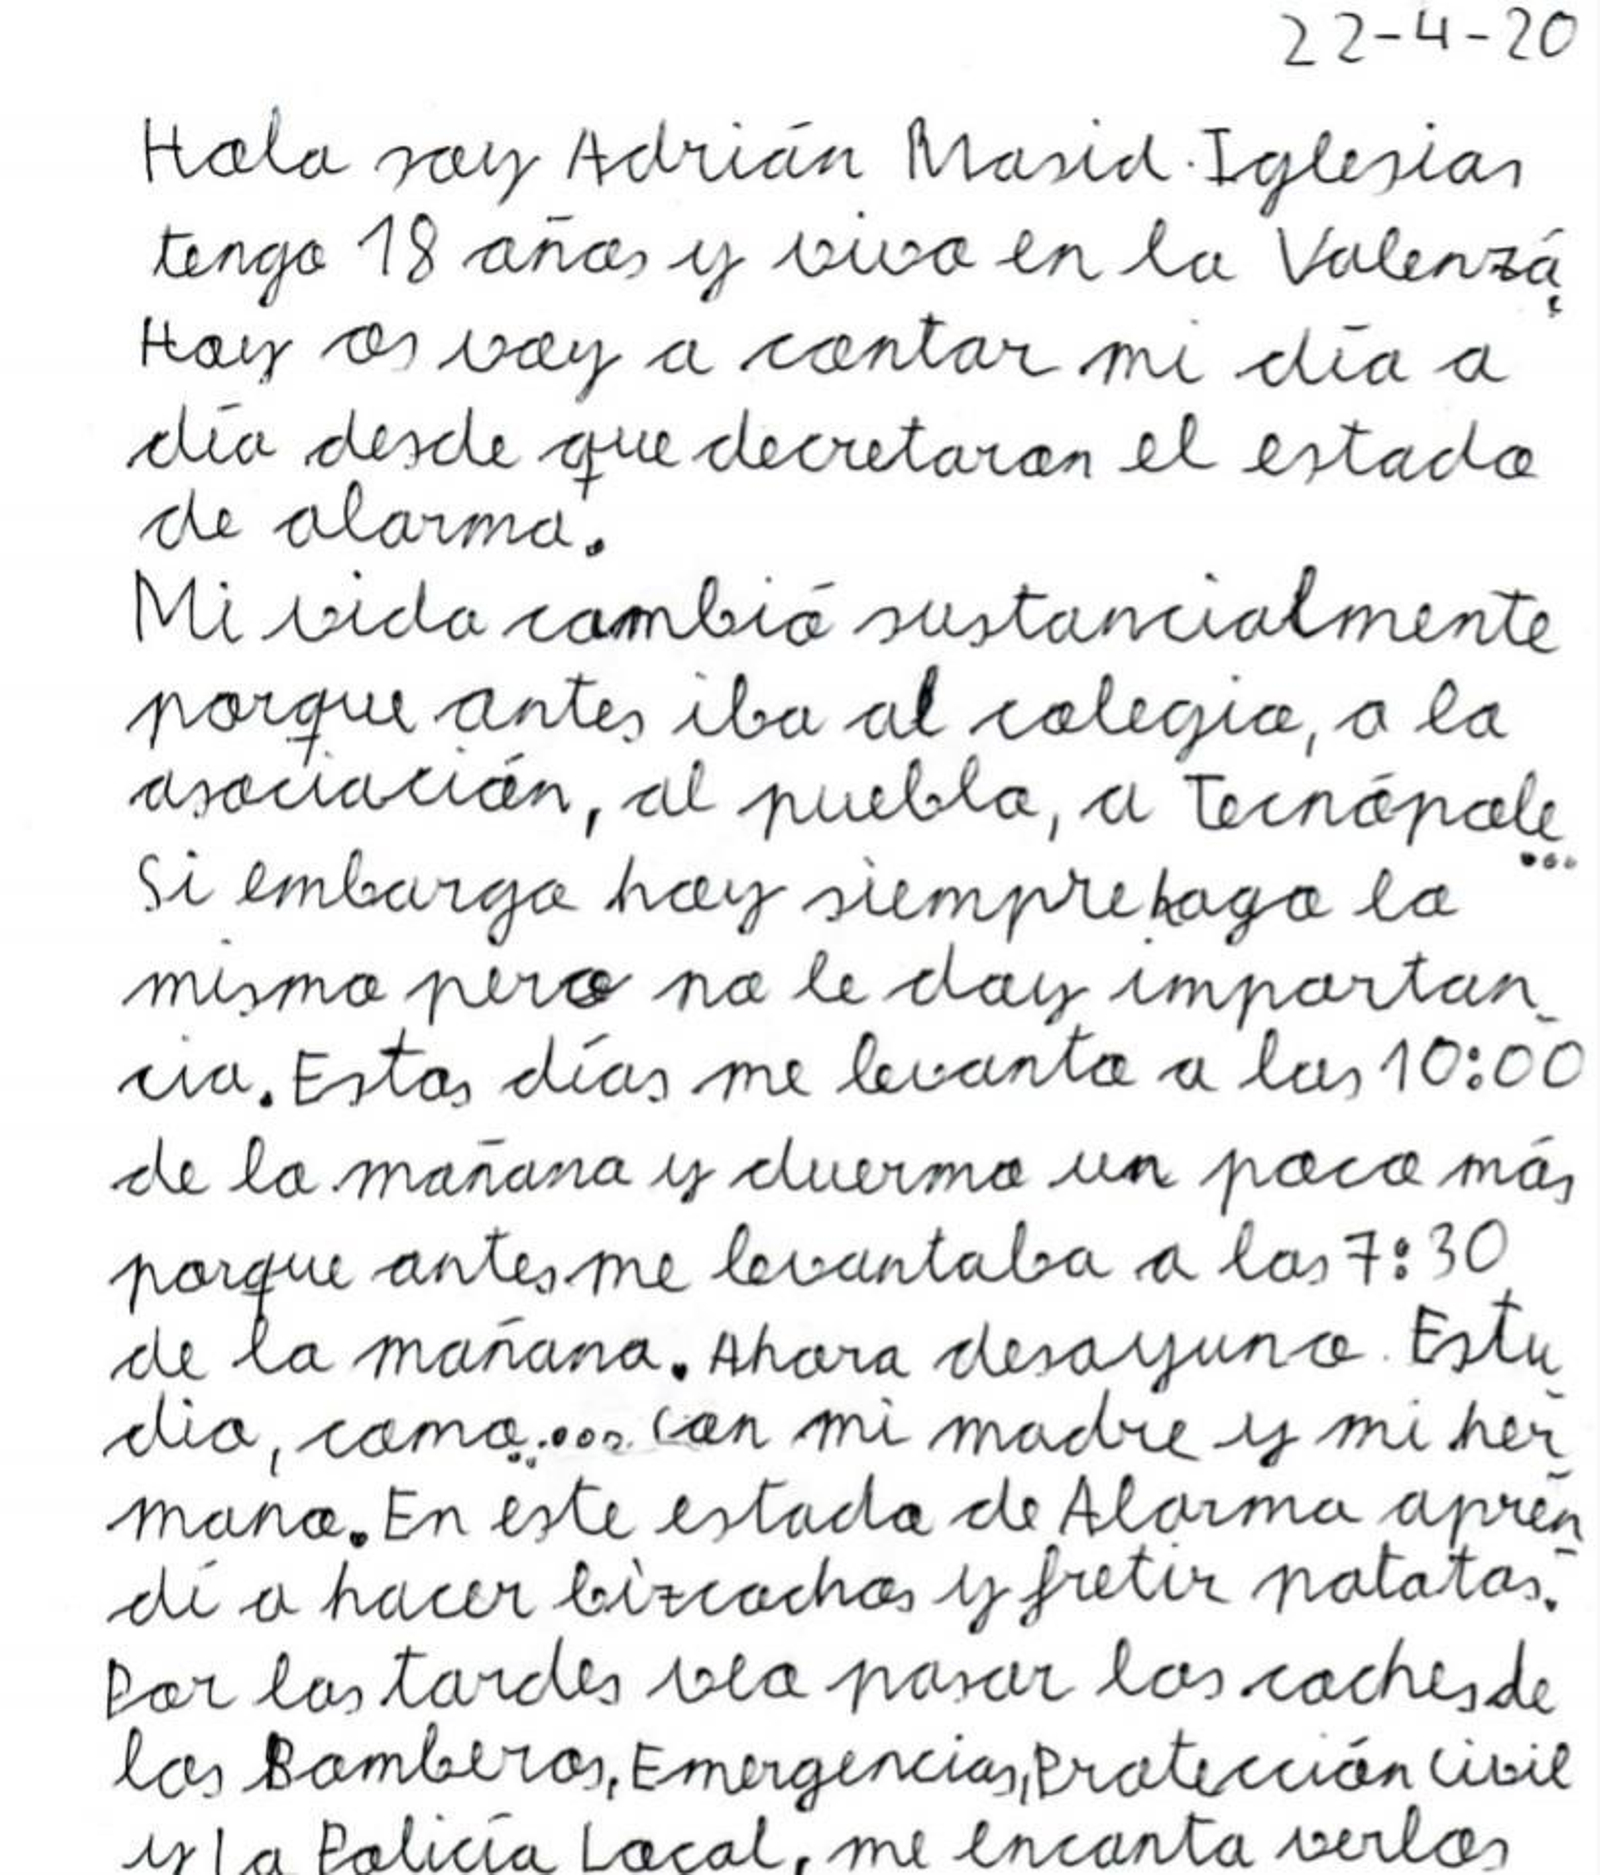 22-4-20
Hola soy Adrián Masid Iglesias
tengo 18 años y vivo en la Valenzá.
Hoy os voy a contar mi día a
día desde que decretaron el estado
de alarma.
Mi vida cambió sustancialmente
porque antes iba al colegio, a la
asociación, al pueblo, a Tecnópole...
Si embargo hoy siempre hago lo
mismo pero no le doy importan-
cia. Estos días me levanto a las 10:00
de la mañana y duermo un poco más
porque antes me levantaba a las 7:30
de la mañana. Ahora desayuno. Estu-
dio, como..... Con mi madre y mi her-
mano. En este estado de Alarma apren-
dí a hacer bizcochos y fretir patatas.
Por las tardes veo pasar los coches de
los Bomberos, Emergencias, Protección Civil
y la Policía Local, me encanta verlos